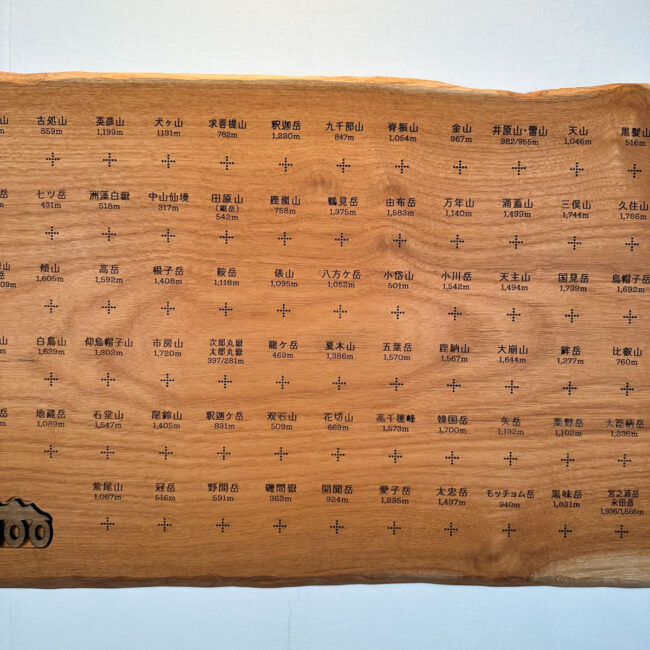 山 古処山 英彦山 犬ヶ山 求菩提山 釈迦岳 九千部山 脊振山 金山 井原山・雷山 天山 黒髪山
859m 1,199m 1131m 782m 1,230m 847m 1,054m 967m 982/955m 1,046m 516m
岳 七ツ岳 洲藻白嶽 中山仙境 田原山 鹿嵐山 鶴見岳 由布岳 万年山 涌蓋山 三俣山 久住山
(鋸岳)
431m 518m 317m 542m 758m 1,375m 1,583m 1,140m 1,499m 1,744m 1,786m
山 傾山 高岳 根子岳 鞍岳 俵山 八方ヶ岳 小岱山 小川岳 天主山 国見岳 烏帽子岳
1,605m 1,592m 1,408m 1,118m 1,095m 1,052m 501m 1,542m 1,494m 1,739m 1,692m
山 白鳥山 仰烏帽子山 市房山 次郎丸嶽 龍ヶ岳 夏木山 五葉岳 鹿納山 大崩山 鉾岳 比叡山
太郎丸嶽
1,639m 1,302m 1,720m 397/281m 469m 1,386m 1,570m 1,567m 1,644m 1,277m 760m
岳 地蔵岳 石堂山 尾鈴山 釈迦ヶ岳 双石山 花切山 高千穂峰 韓国岳 矢岳 栗野岳 大箆柄岳
1,089m 1,547m 1,405m 831m 509m 669m 1,573m 1,700m 1,132m 1,102m 1,236m
紫尾山 冠岳 野間岳 磯間嶽 開聞岳 愛子岳 太忠岳 モッチョム岳 黒味岳 宮之浦岳
永田岳
1,067m 516m 591m 363m 924m 1,235m 1,497m 940m 1,831m 1,936/1,886m
100